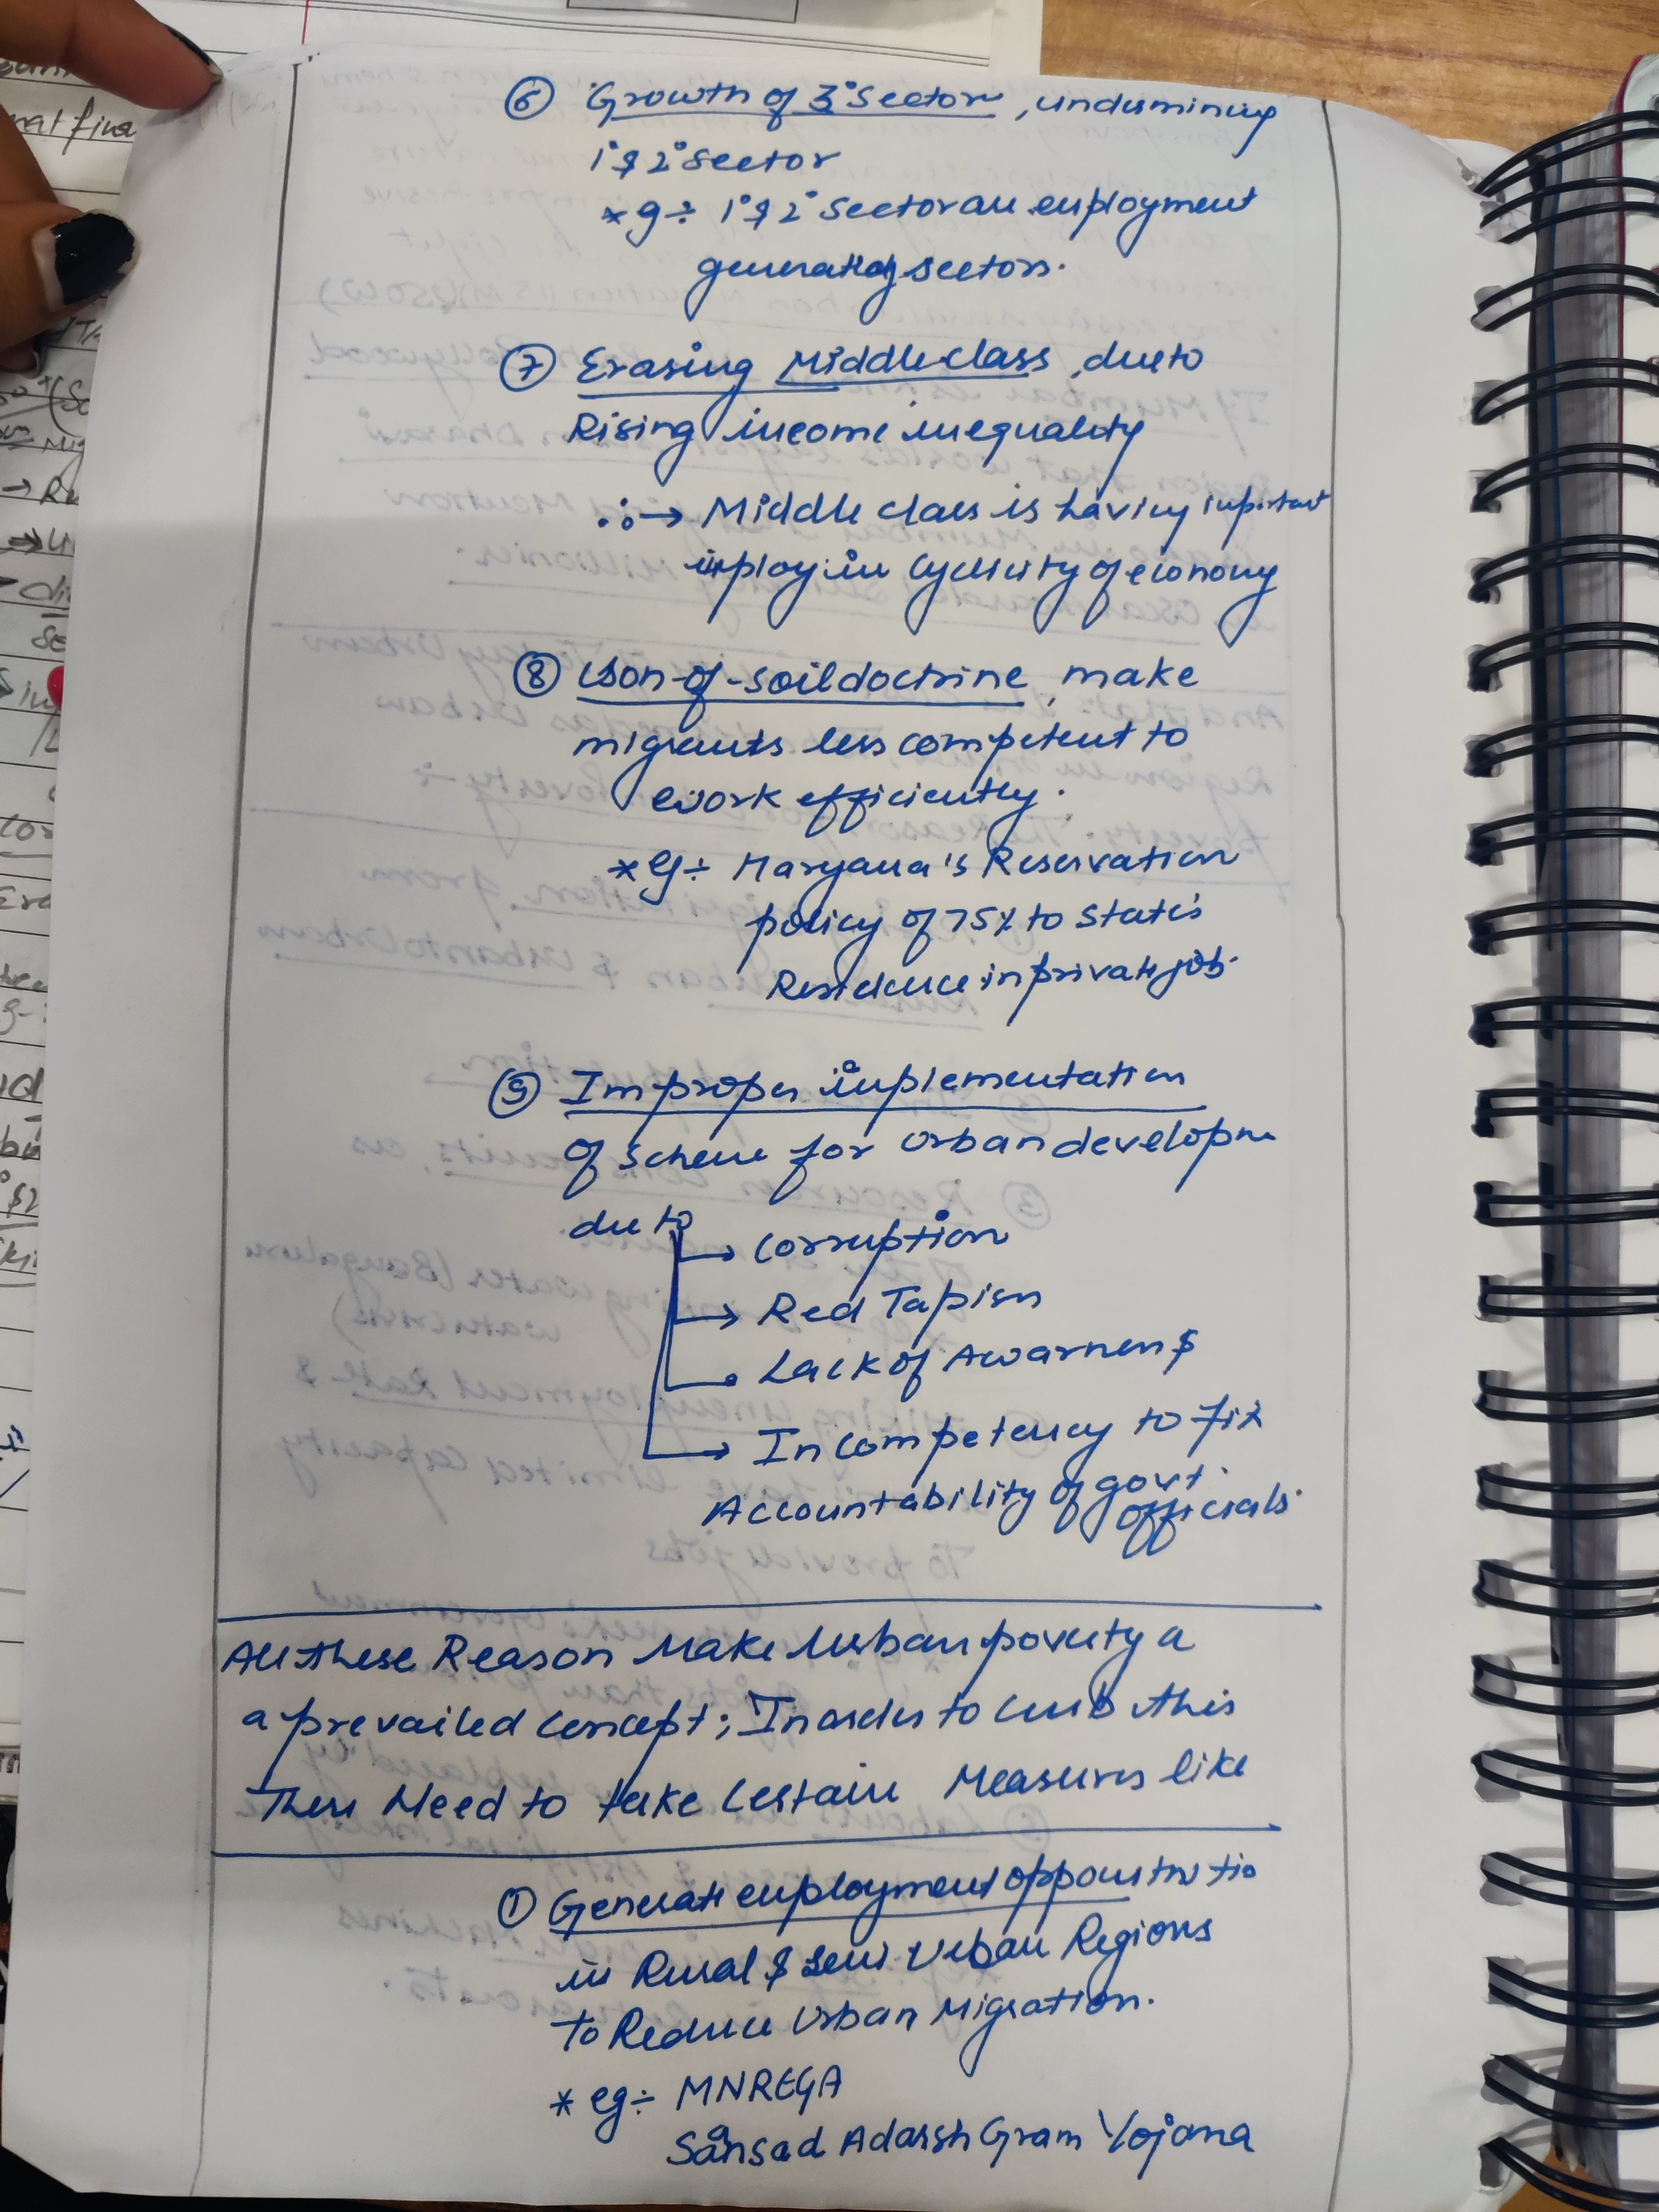 ⑥ Growth of 3° Sector, undermining
1° & 2° sector
*eg÷ 1° & 2° sector are employment
generating sectors.
⑦ Erasing Middle class, due to
Rising income inequality
∴→ Middle class is having important
in cyclicity of economy
⑧ Son-of-soil doctrine, make
migrants less competent to
work efficiently.
*eg÷ Haryana's Reservation
policy of 75% to state's
Residence in private job.
⑨ Improper implementation
of scheme for urban developm
due to
→ corruption
→ Red Tapism
Lack of Awarness
→ Incompetency to fix
Accountability of govt.
officials.
All these Reason Make Urban poverty a
a prevailed concept; In order to curb this
There Need to take certain Measures like
① Generate employment
in Rural & Semi Urban Regions
to Reduce Urban Migration.
* eg÷ MNREGA
Sansad Adarsh Gram Yojana